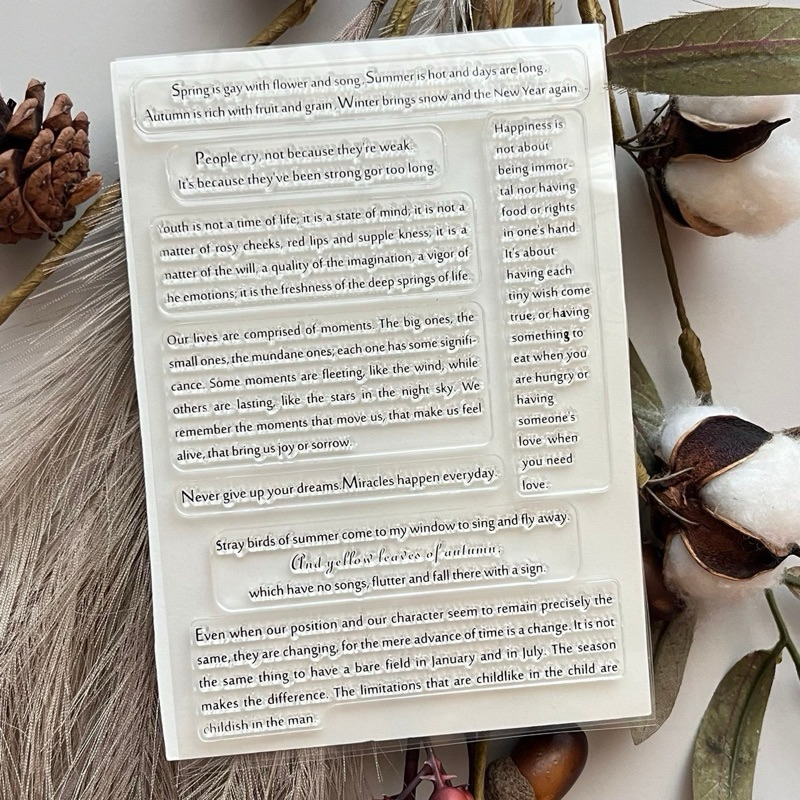 Spring is gay with flower and song, Summer is hot and days are long.
Autumn is rich with fruit and grain, Winter brings snow and the New Year again.
People cry, not because they're weak.
It's because they've been strong gor too long.
Youth is not a time of life; it is a state of mind; it is not a
matter of rosy cheeks, red lips and supple kness; it is a
natter of the will, a quality of the imagination, a vigor of
he emotions; it is the freshness of the deep springs of life.
Our lives are comprised of moments. The big ones, the
small ones, the mundane ones; each one has some signifi-
cance. Some moments are fleeting, like the wind, while
others are lasting, like the stars in the night sky. We
remember the moments that move us, that make us feel
alive, that bring us joy or sorrow.
Never give up your dreams.Miracles happen everyday.
Happiness is
not about
being immor-
tal nor having
food or rights
in one's hand.
It's about
having each
tiny wish come
true, or having
something to
eat when you
are hungry or
having
someone's
love when
you need
love.
Stray birds of summer come to my window to sing and fly away.
And yellow leaves of autumn,
which have no songs, flutter and fall there with a sign.
Even when our position and our character seem to remain precisely the
same, they are changing, for the mere advance of time is a change. It is not
the same thing to have a bare field in January and in July. The season
makes the difference. The limitations that are childlike in the child are
childish in the man.